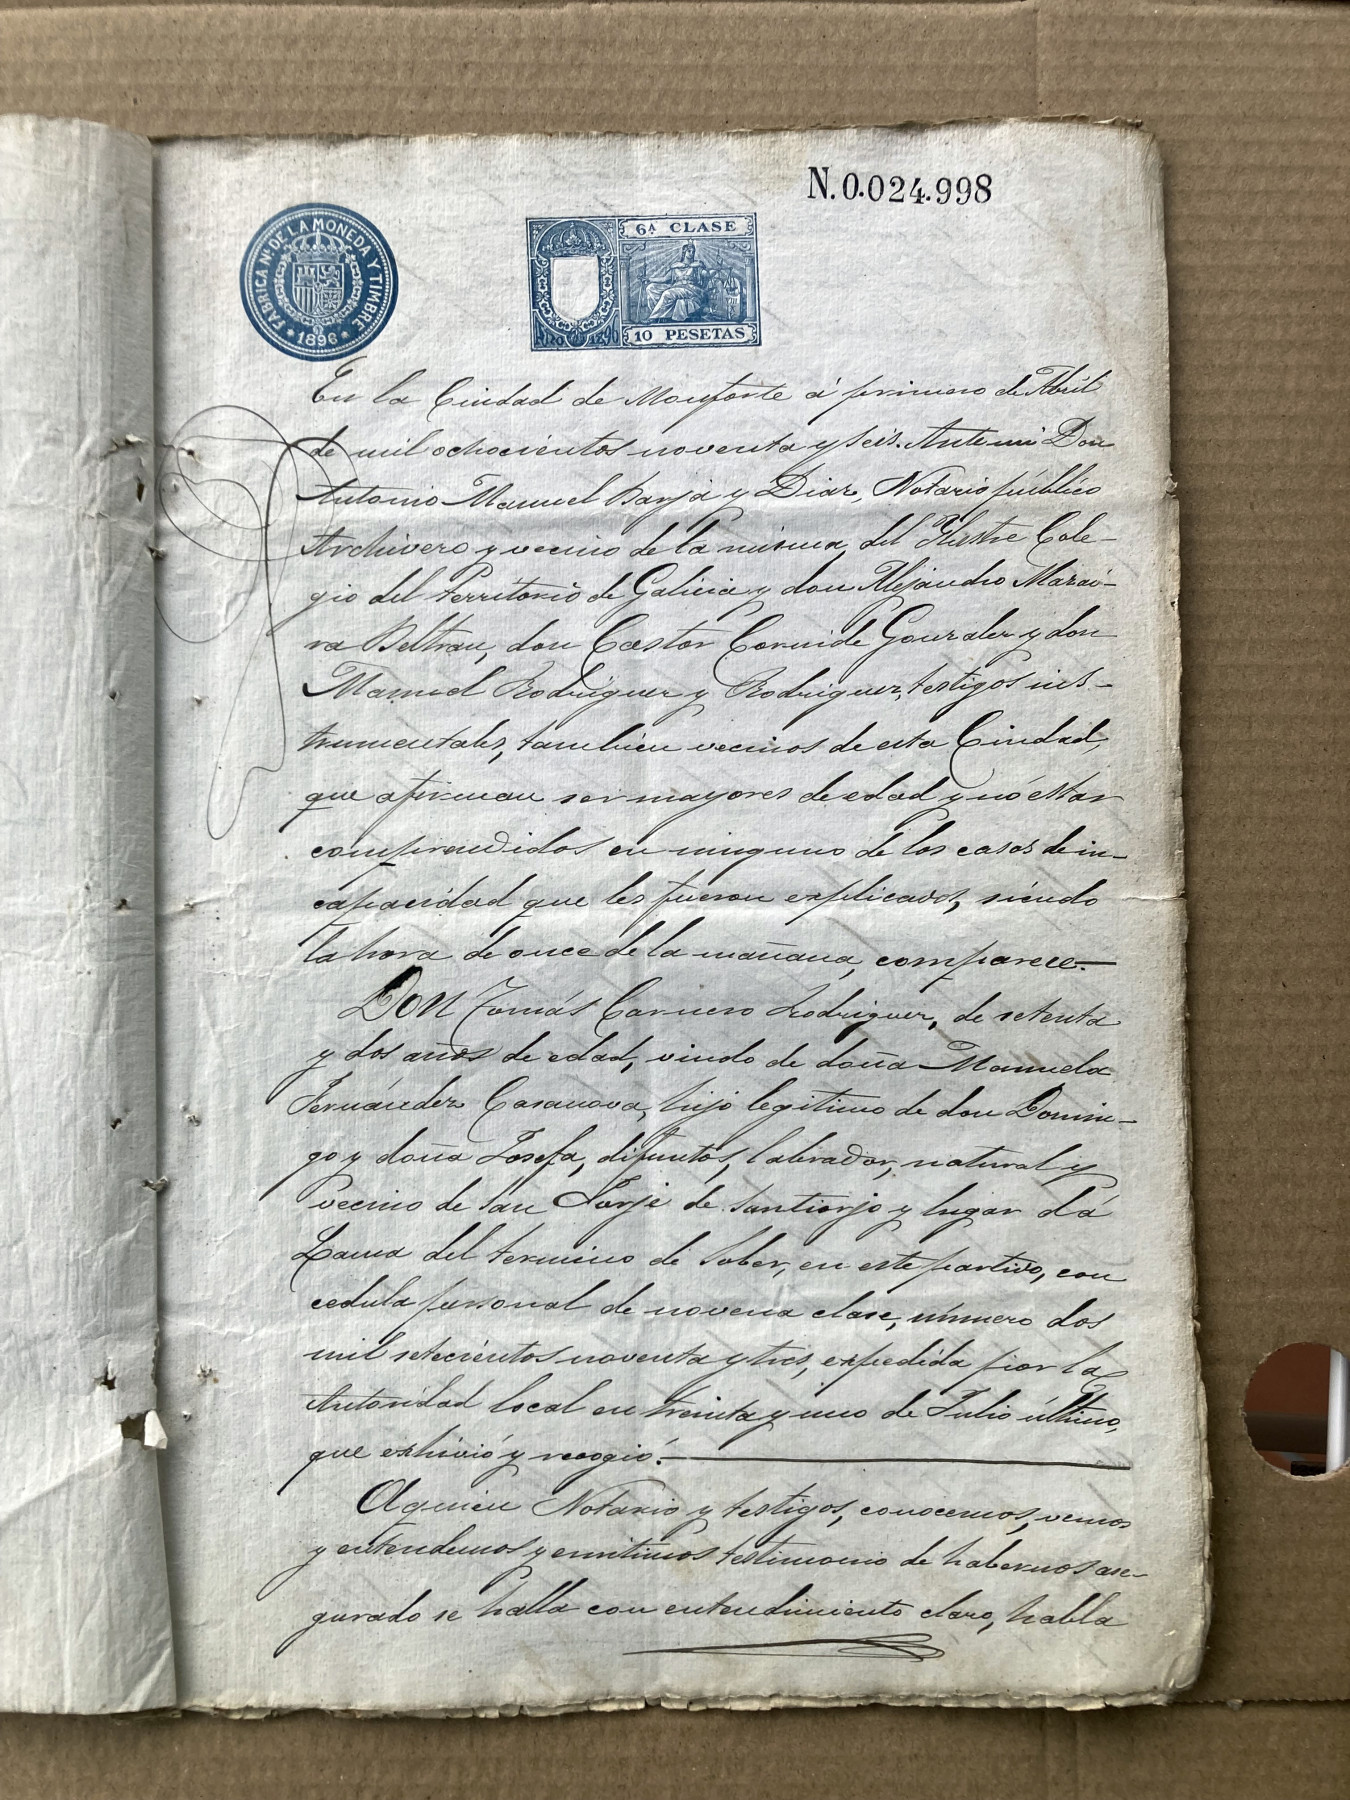 N.0.024.998
FÁBRICA Nl. DE LA MONEDA Y TIMBRE
* 1896 *
6ª CLASE
10 PESETAS
En la Ciudad de Monforte á primero de Abril
de mil ochocientos noventa y seis. Ante mi Don
Antonio Manuel Barja y Diaz, Notario público
Archivero y vecino de la misma, del Ilustre Cole-
gio del Territorio de Galicia y don Alejandro
Beltran, don Castor Cornide Gonzalez y don
Manuel Rodriguez y Rodriguez, testigos ins-
trumentales, tambien vecinos de esta Ciudad,
que afirman ser mayores de edad y nó estar
comprendidos en ninguno de los casos de in-
capacidad que les fueron explicados, siendo
la hora de once de la mañana, comparece.—
Don Tomás Carnero Rodriguez, de setenta
y dos años de edad, viudo de doña Manuela
Fernández Casanova, hijo legitimo de don Domin-
go y doña Josefa, difuntos, labrador, natural y
vecino de San Jorje de Santiorjo y lugar dá
Lama del término de Sober, en este partido, con
cedula personal de novena clase, número dos
mil setecientos noventa y tres, expedida por la
Autoridad local en treinta y uno de Julio último,
que exhivió y recogió.—
A quien Notario y testigos, conocemos, vemos
y entendemos y emitimos testimonio de habernos ase-
gurado se halla con entendimiento claro, habla